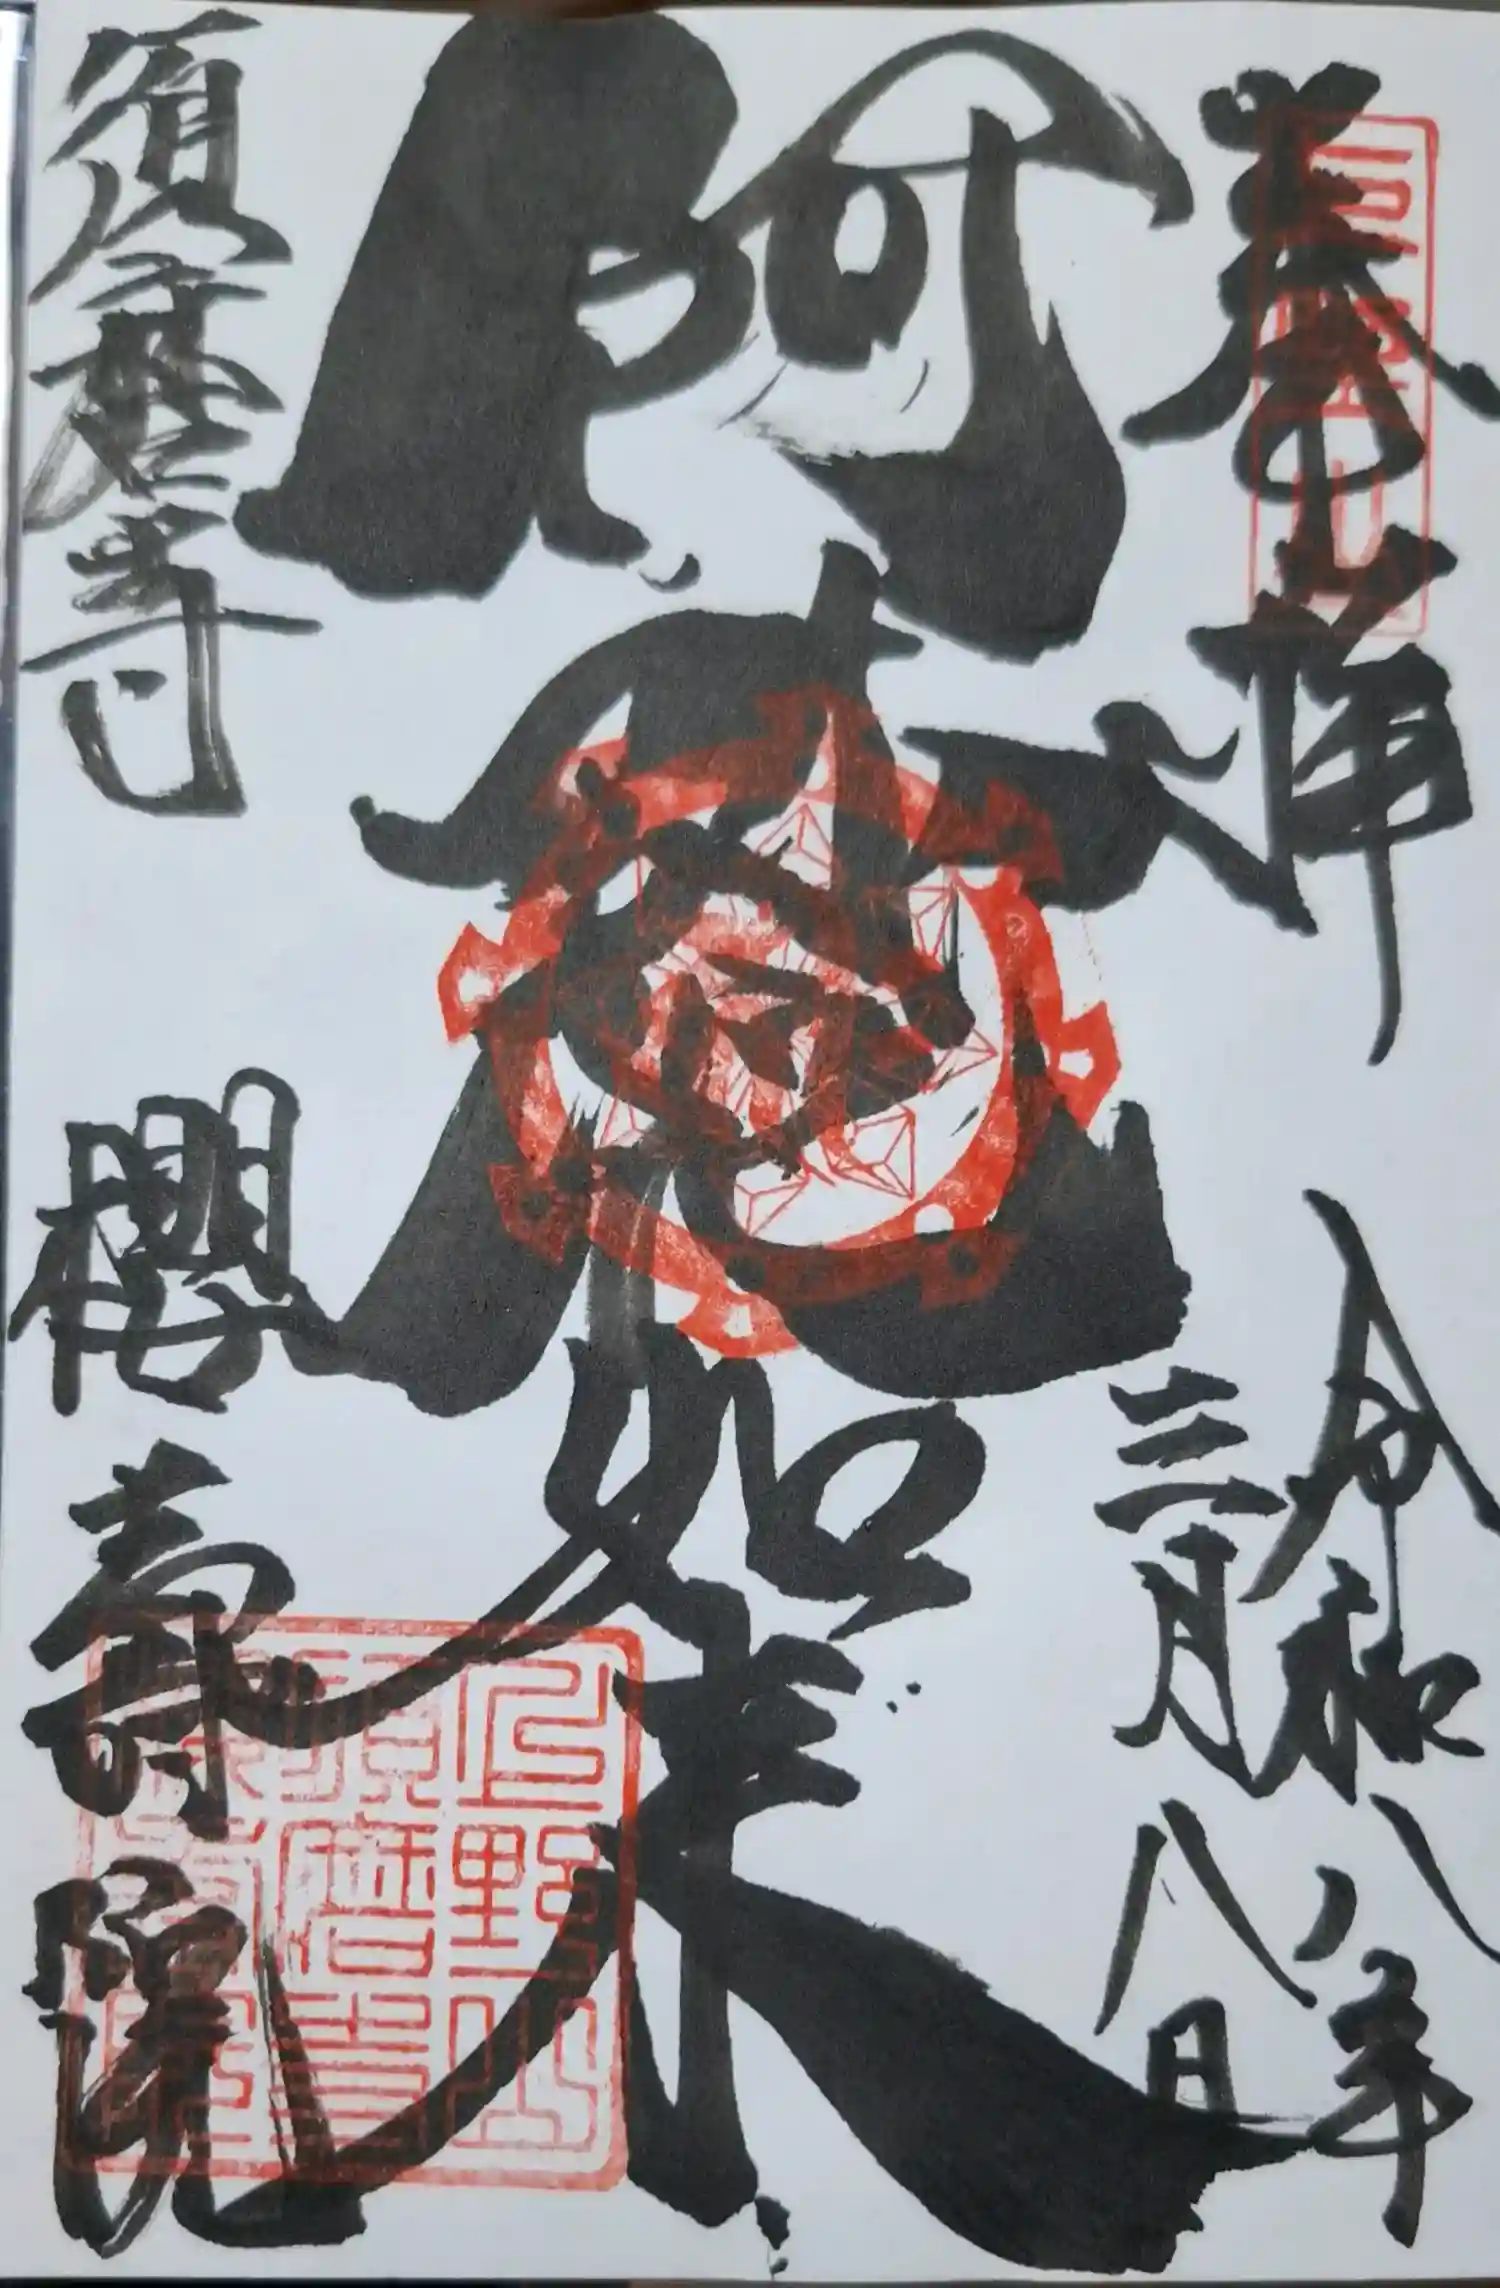 奉拝
令和八年
三月八日
阿
如来
須磨寺
櫻壽院
上野山
須磨寺